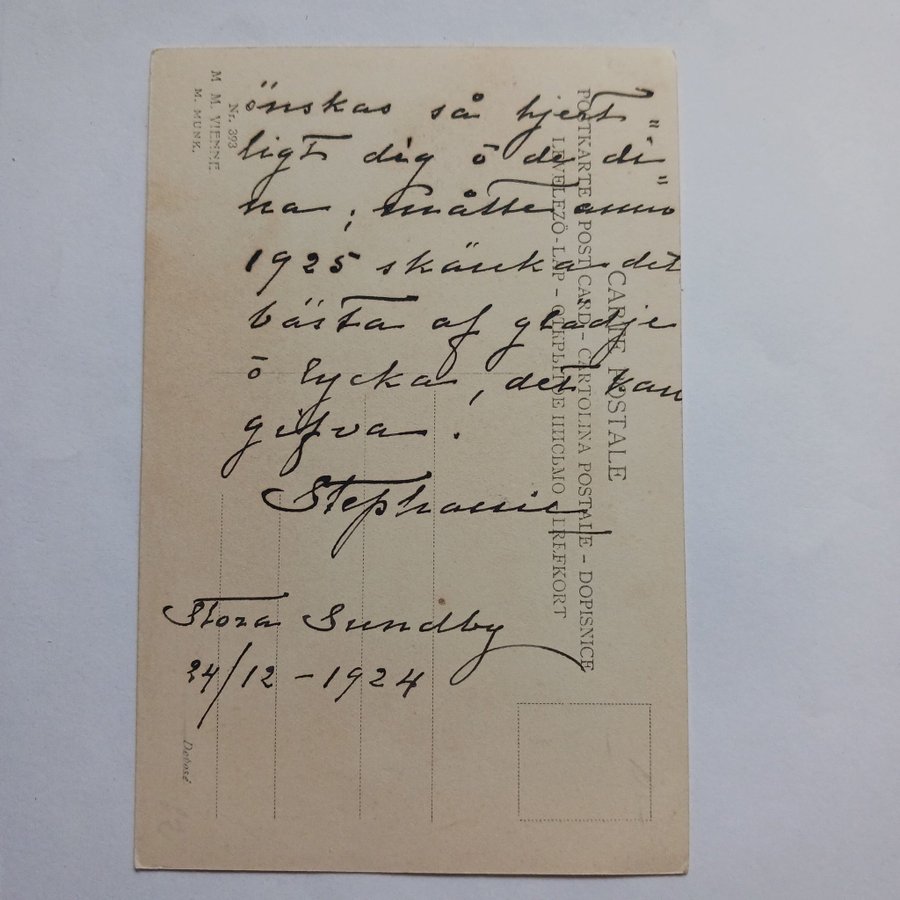 önskas så hjert=
ligt dig ö de di=
na; måtte anno
1925 skänka det
bästa af glädje
ö lycka, det kan
gifva.
Stephanie
Stora Sundby
24/12 - 1924
CARTE POSTALE
POSTKARTE - POST CARD - CARTOLINA POSTALE - DOPISNICE
LEVELEZÖ-LAP - ОТКРЫТОЕ ПИСЬМО - BREFKORT
Nr. 393
M. M. VIENNE
M. MUNK.
Deposé